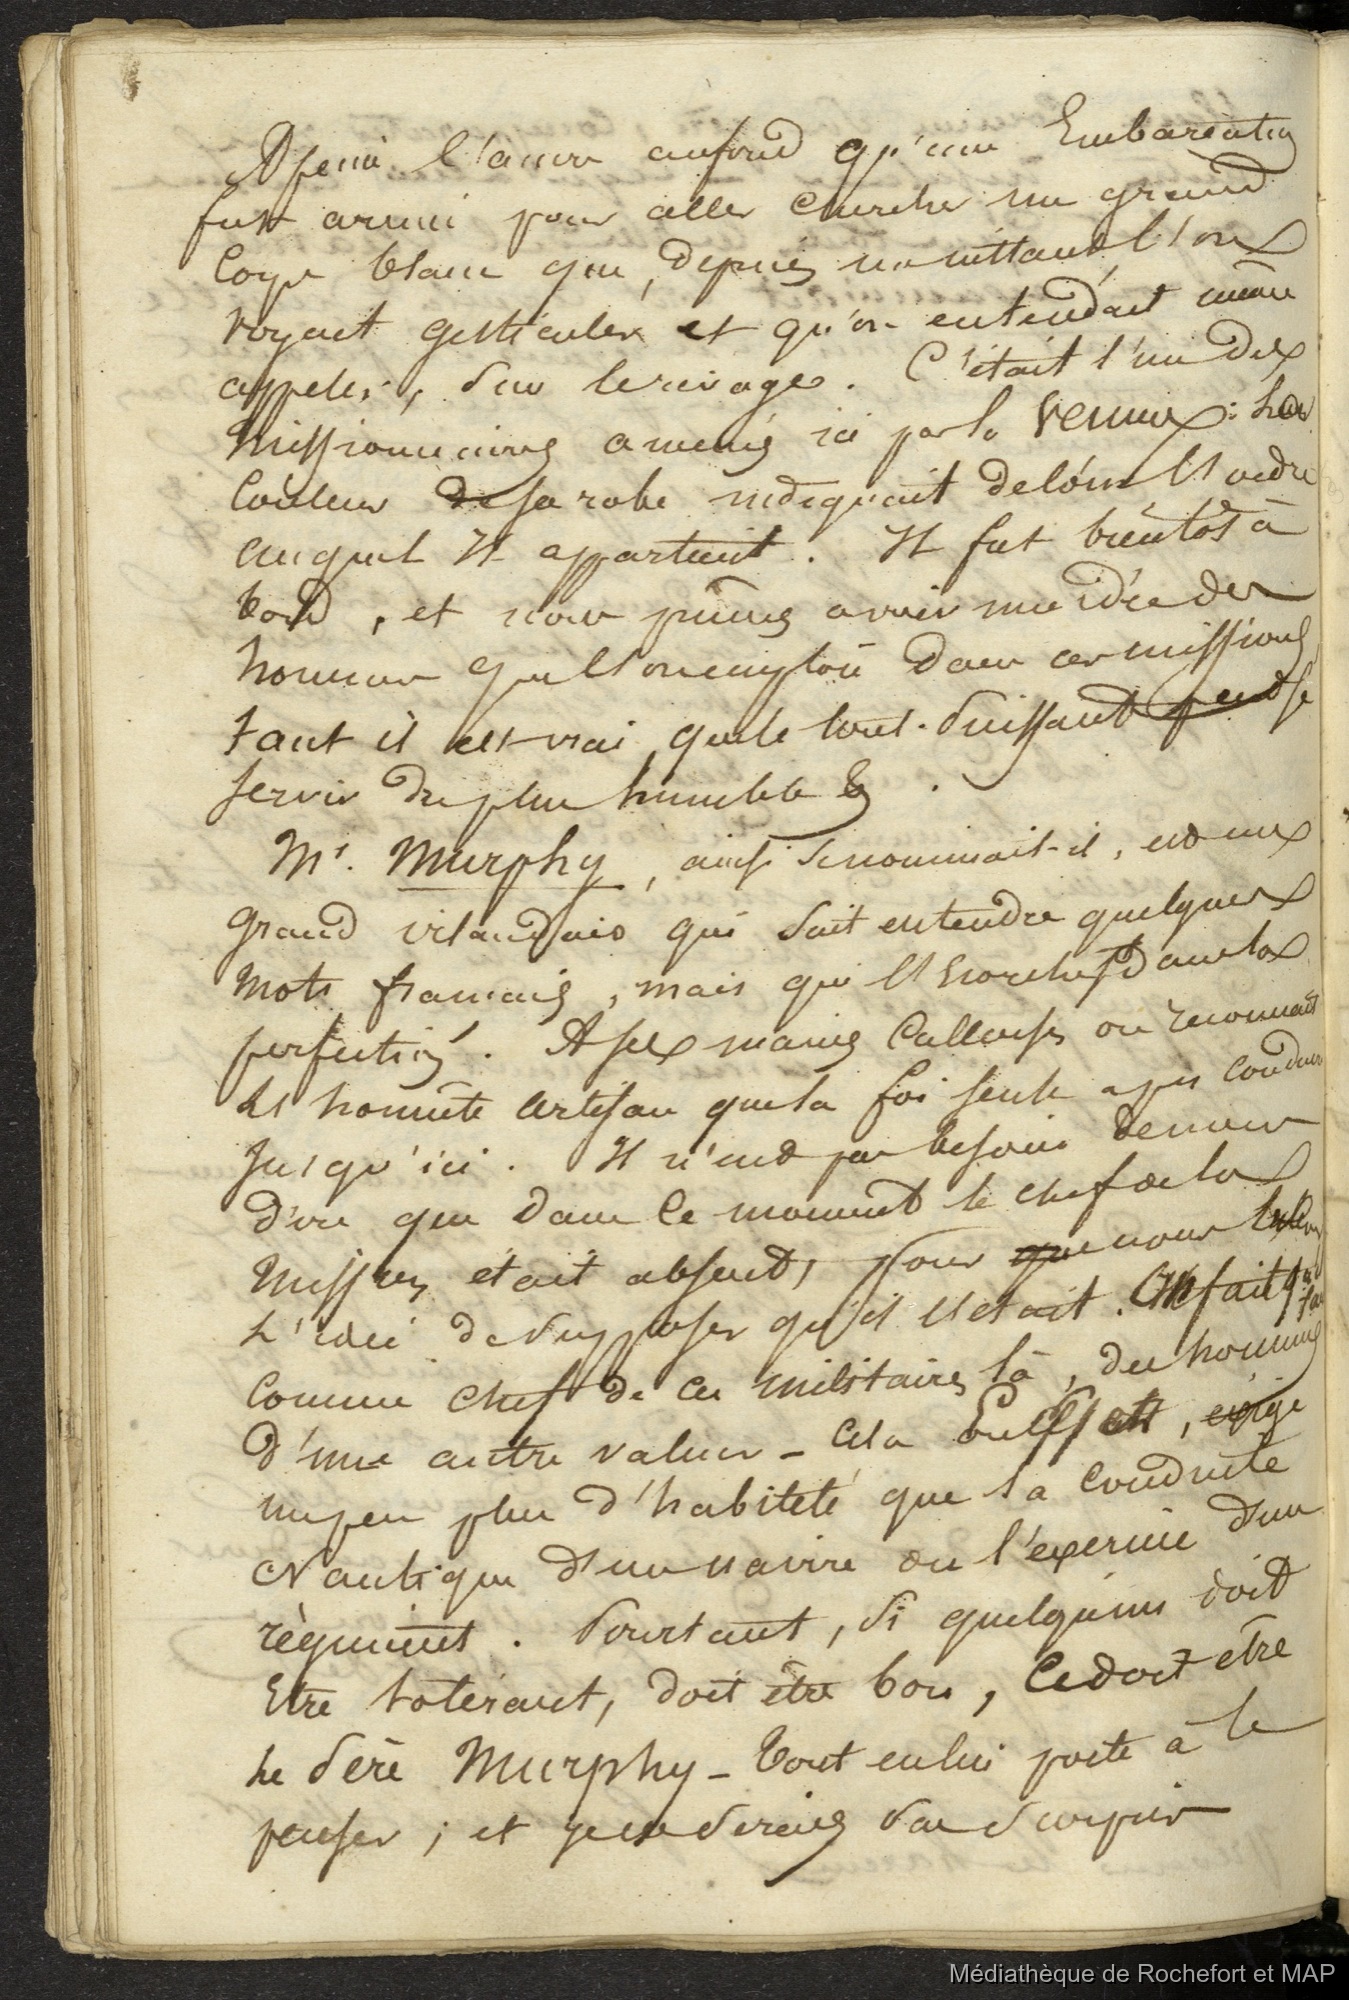 A peine l'ancre au fond qu'une Embarcation
fut armée pour aller chercher un grand
corps blanc que, depuis un instant l'on
voyait gesticuler et qu'on entendait même
appeler, sur le rivage. C'était l'un des
Missionnaires amenés ici par la Venus: la
Couleur de sa robe indiquait de loin l'ordre
auquel Il appartient. Il fut bientôt à
bord, et nous pûmes avoir une idée des
hommes que l'on emploie dans ces missions
tant il est vrai que le tout-Puissant peut se
servir du plus humble &
Mr. Murphy, ainsi se nommait-il, est un
grand irlandais qui sait entendre quelques
mots français, mais qui les écorche dans la
perfection. A ses mains calleuses on reconnait
l'honnête artisan que la foi seule a pu conduire
Jusqu'ici. Il n'eut pas besoin de nous
dire que dans ce moment le chef de la
Mission était absent, pour que nous
L'idée de supposer qu'il l'était. On fait
comme chef de ces militaires là, des hommes
d'une autre valeur - Cela exige
un peu plus d'habileté que la conduite
Nautique d'un navire ou l'exercice d'un
règiment. Pourtant, si quelqu'un doit
Etre tolérant, doit être bon, Ce doit être
Le Père Murphy - Tout en lui porte à le
penser; et je ne serais pas surpris
Médiathèque de Rochefort et MAP